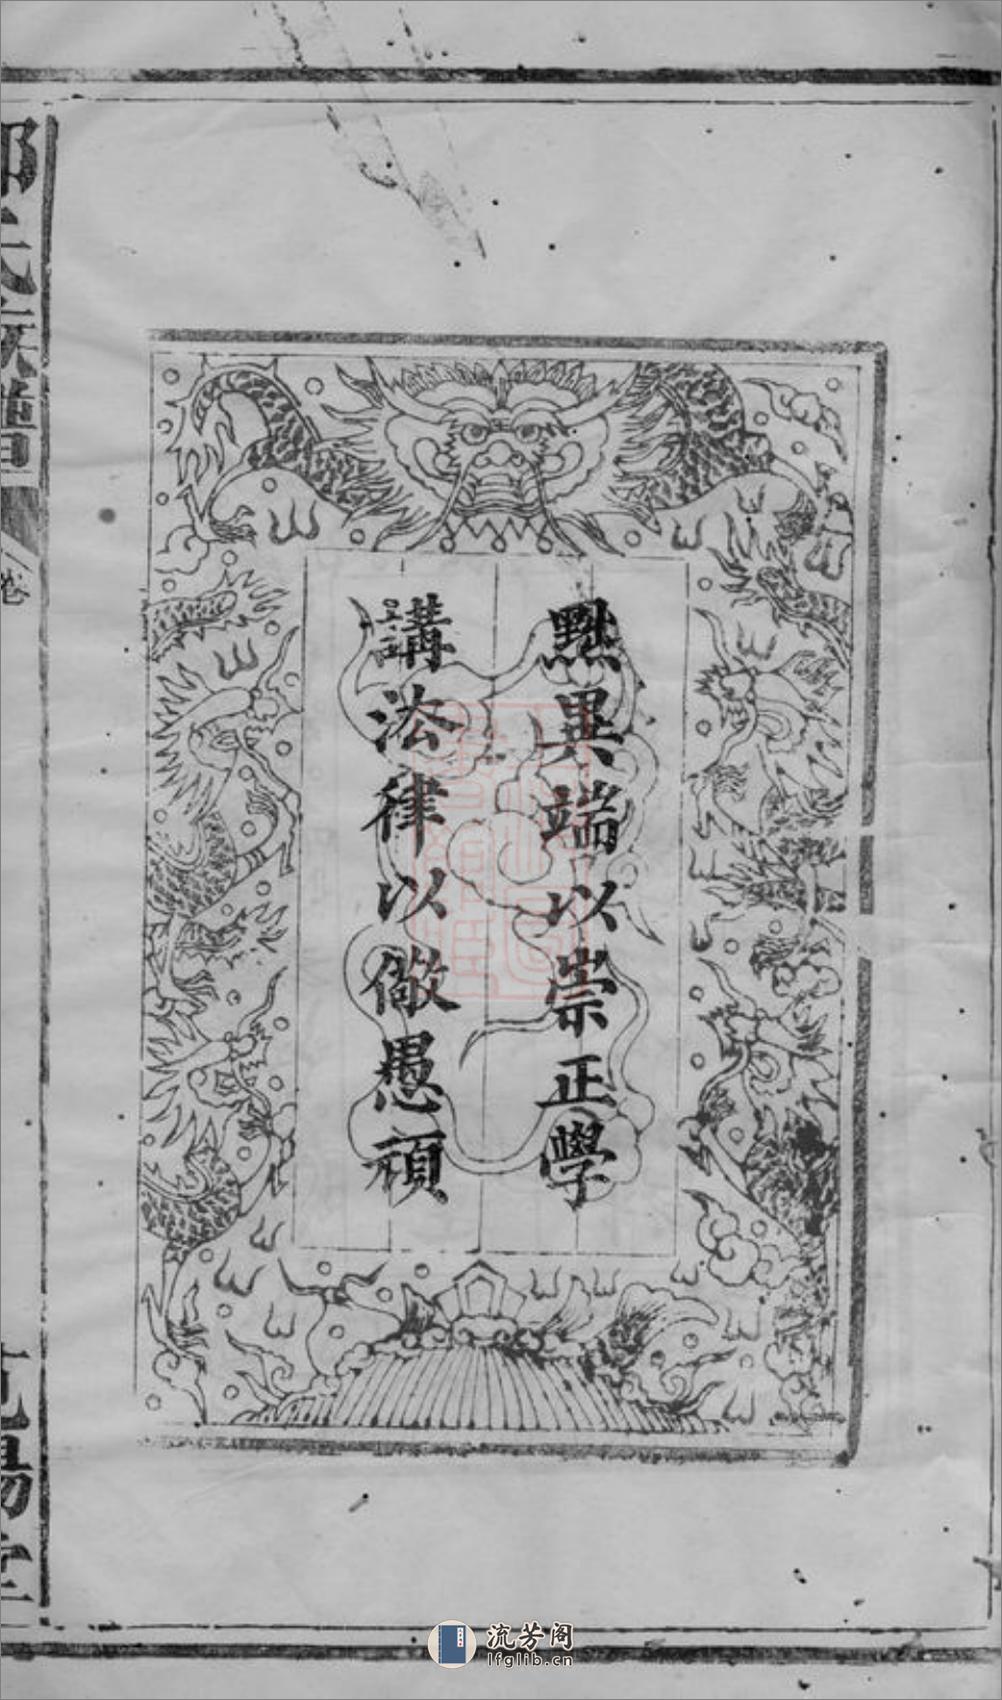 黜異端以崇正學
講法律以儆愚頑
氏族譜
卷
流芳阁
lfglib.cn